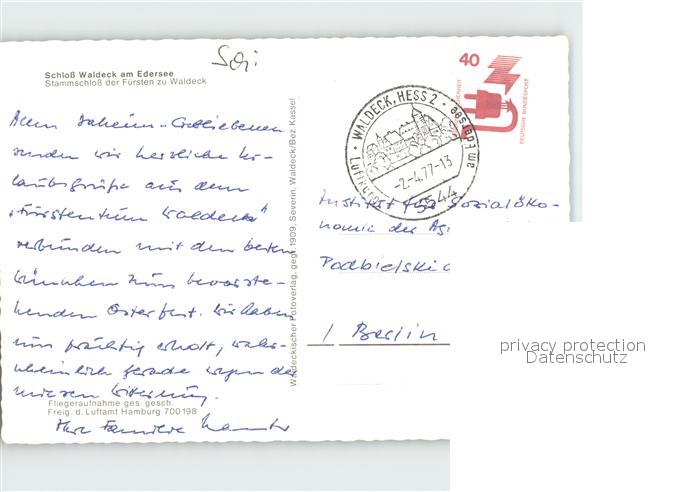 Sci
Schloß Waldeck am Edersee
Stammschloß der Fürsten zu Waldeck
Allen Daheim-Gebliebenen
senden wir herzliche Ur-
laubsgrüße aus dem
"Fürstentum Waldeck"
verbunden mit den besten
Wünschen zum bevorste-
henden Osterfest. Wir haben
uns prächtig erholt, wahr-
scheinlich gerade wegen der
miesen Witterung.
Ihre Familie
Fliegeraufnahme ges. gesch.
Freig. d. Luftamt Hamburg 700198
Waldeckischer Fotoverlag, gegr. 1909, Severin, Waldeck/Bez. Kassel
40
DEUTSCHE BUNDESPOST
WALDECK, HESS 2
am Edersee
Luftkurort
-2.-4.77-13
3544
Institut für Sozialöko-
nomie der Ag
Podbielskia
1 Berlin
privacy protection
Datenschutz